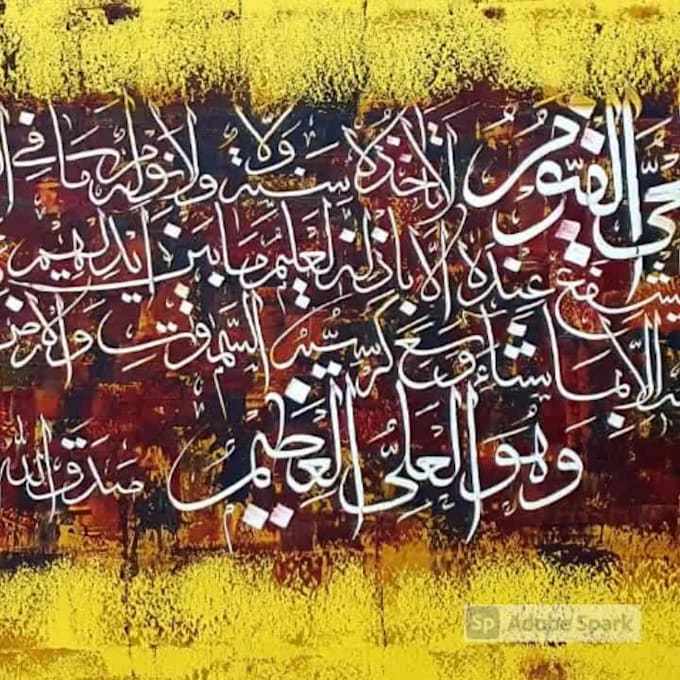 حيُّ القيّومُ لا تأخذه سنة ولا نوم له ما في
يشفع عنده إلا بإذنه يعلم ما بين أيديهم
إلا بما شاء وسع كرسيه السموت والأرض
وهو العليُّ العظيمُ صدق الله
Sp Adobe Spark